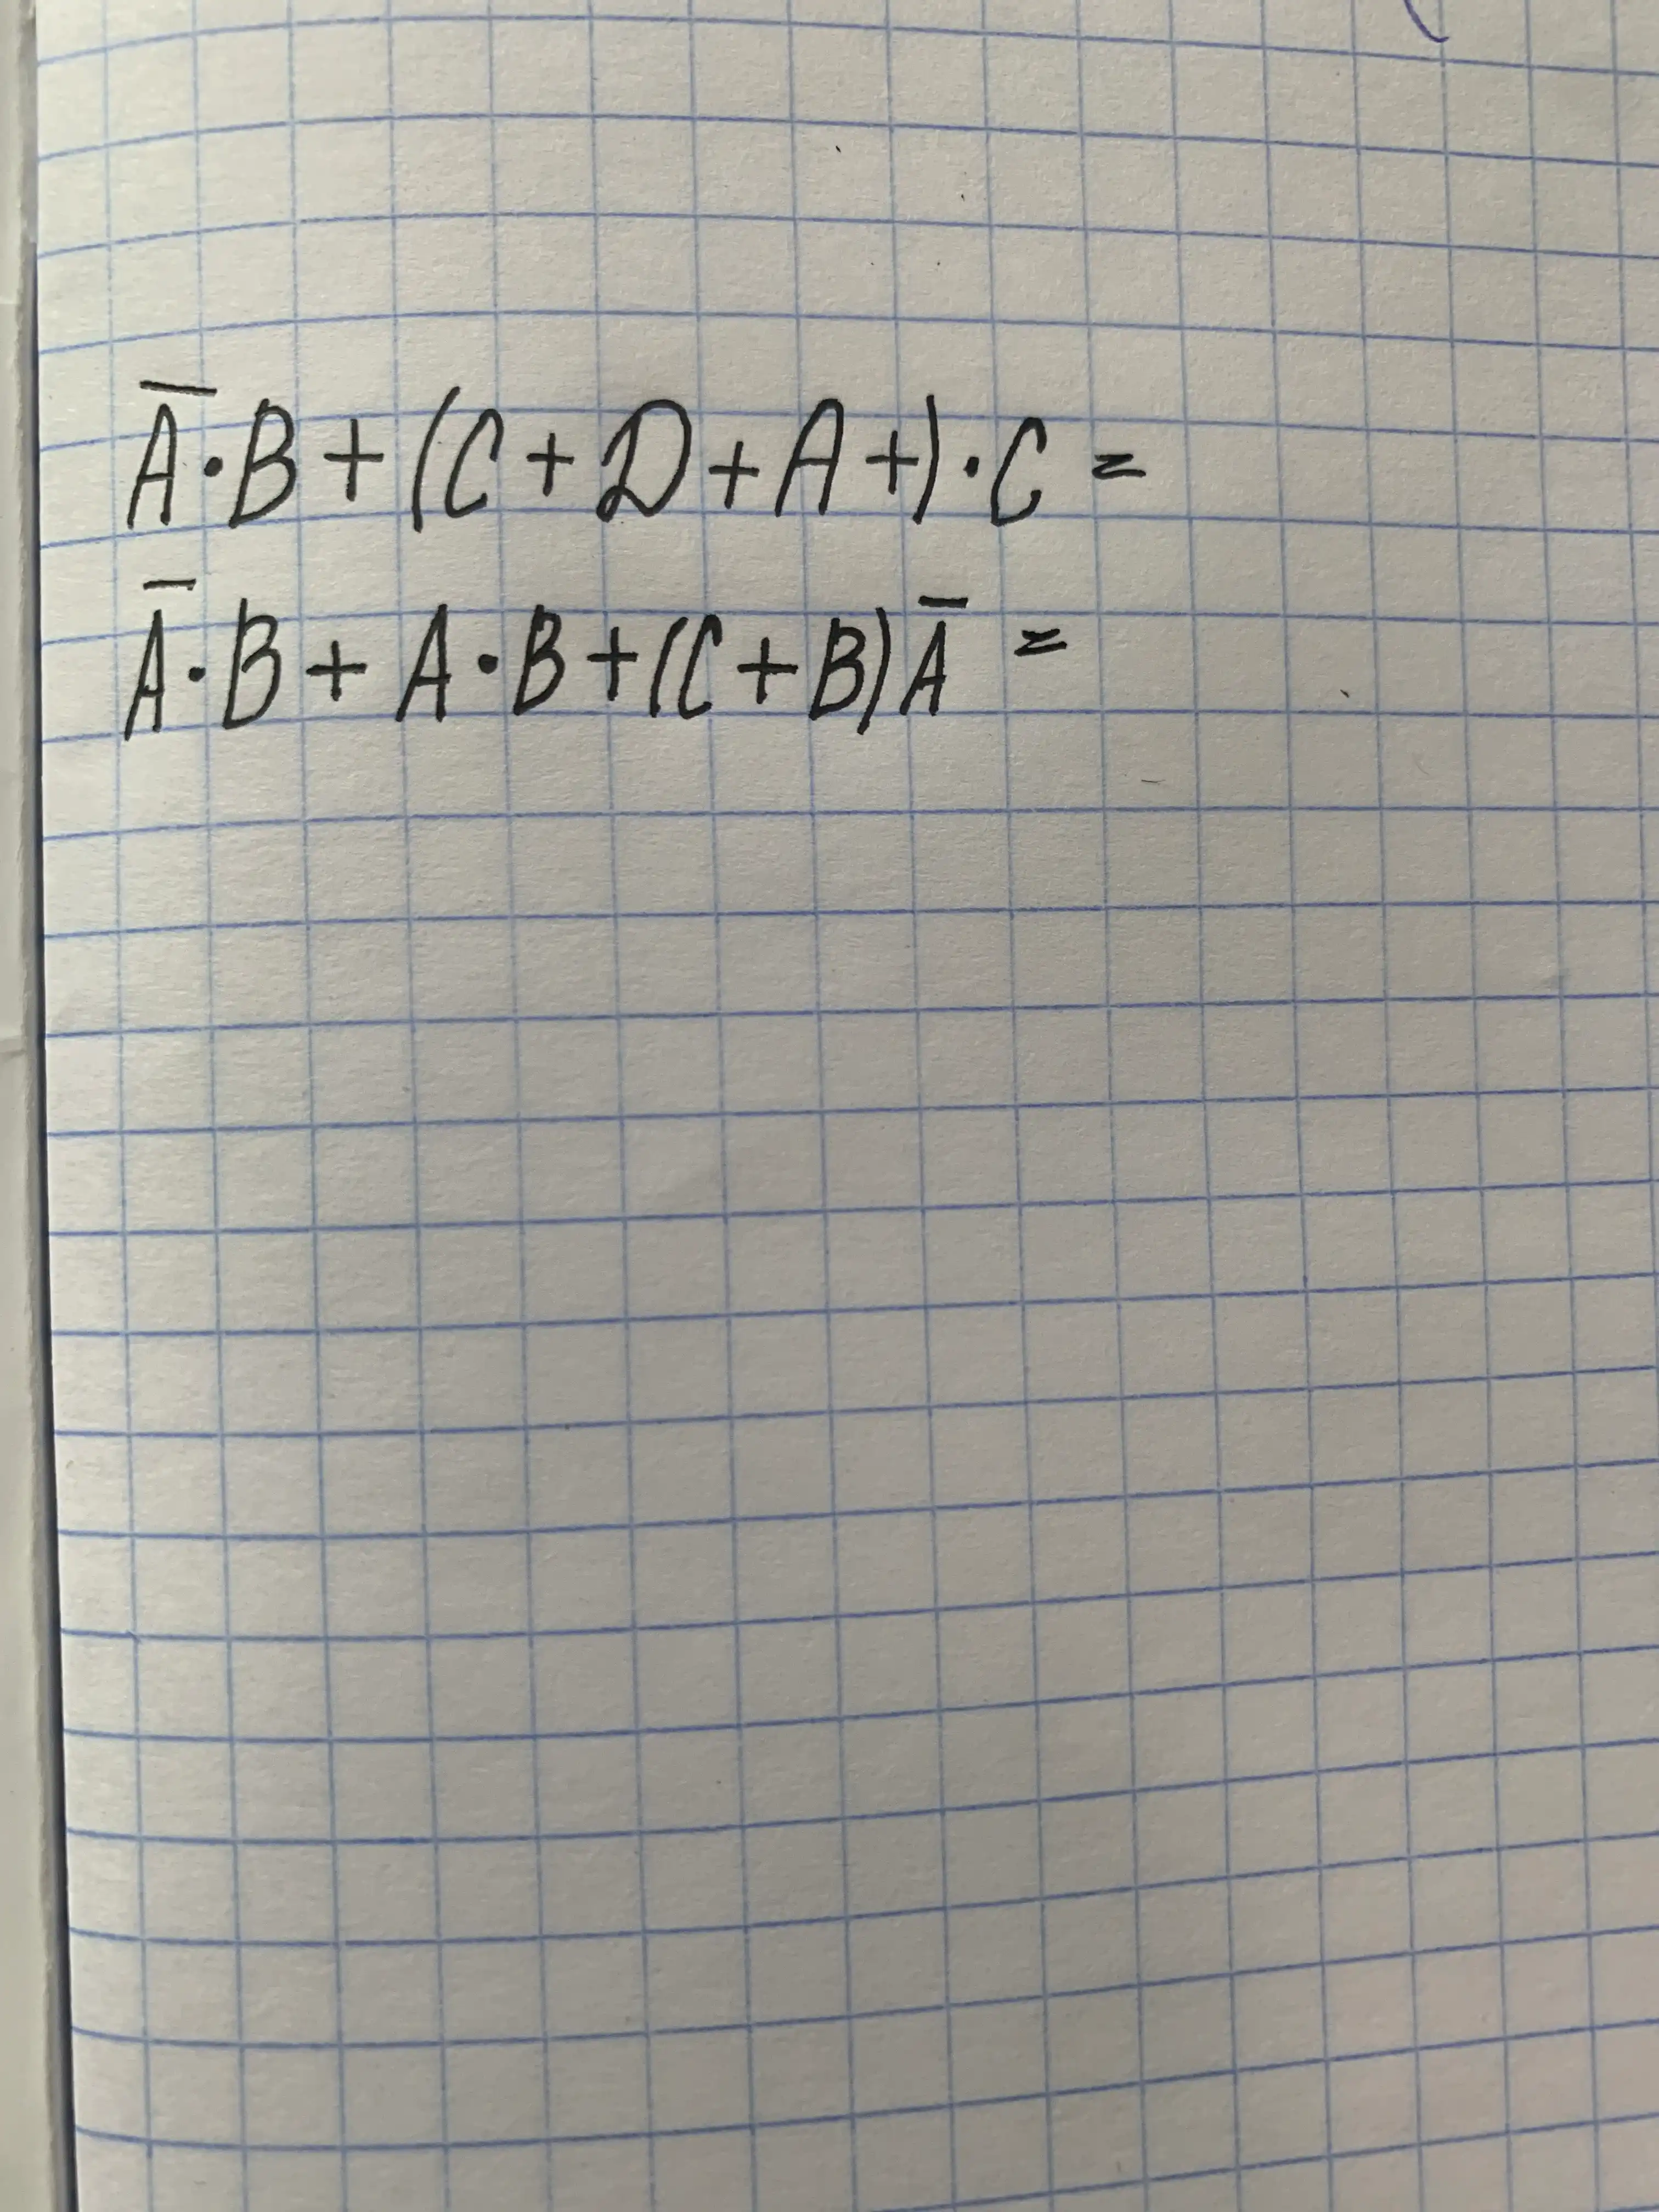 A̅·B+(C+D+A+)·C=
A̅·B+A·B+(C+B)A̅=